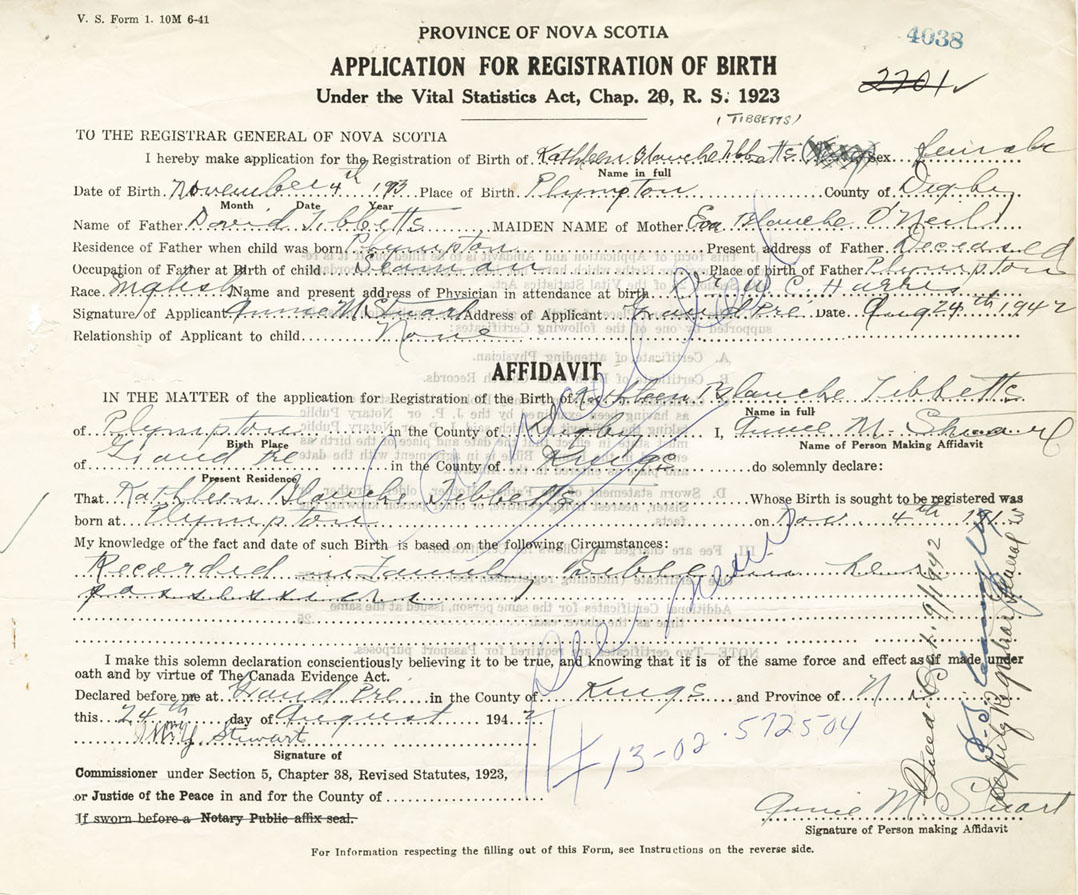 V. S. Form 1. 10M 6-41
4038
PROVINCE OF NOVA SCOTIA
APPLICATION FOR REGISTRATION OF BIRTH
2201 ✓
Under the Vital Statistics Act, Chap. 20, R. S. 1923
(TIBBETTS)
TO THE REGISTRAR GENERAL OF NOVA SCOTIA
I hereby make application for the Registration of Birth of Kathleen Blanche Tibbetts Sex female
Name in full
Date of Birth November 4th Place of Birth Plympton County of Digby
Month Date Year
Name of Father David Tibbetts MAIDEN NAME of Mother Eva Blanche O'Neil
Residence of Father when child was born Plympton Present address of Father Deceased
Occupation of Father at Birth of child Seaman Place of birth of Father Plympton
Race English Name and present address of Physician in attendance at birth Dr W. C. Harris
Signature of Applicant Annie M. Stuart Address of Applicant Grand Pre Date Aug 24th 1942
Relationship of Applicant to child None
AFFIDAVIT
IN THE MATTER of the application for Registration of the Birth of Kathleen Blanche Tibbetts
Name in full
of Plympton in the County of Digby I, Annie M. Stuart
Birth Place Name of Person Making Affidavit
of Grand Pre in the County of Kings do solemnly declare:
Present Residence
That Kathleen Blanche Tibbetts Whose Birth is sought to be registered was
born at Plympton on Nov. 4th
My knowledge of the fact and date of such Birth is based on the following Circumstances:
Recorded in Family Bible in her
possession
I make this solemn declaration conscientiously believing it to be true, and knowing that it is of the same force and effect as if made under
oath and by virtue of The Canada Evidence Act.
Declared before me at Grand Pre in the County of Kings and Province of N. S.
this 24th day of August 1942
Stewart
Signature of
Commissioner under Section 5, Chapter 38, Revised Statutes, 1923,
or Justice of the Peace in and for the County of
If sworn before a Notary Public affix seal.
13-02-572504
Annie M. Stuart
Signature of Person making Affidavit
For Information respecting the filling out of this Form, see Instructions on the reverse side.
Filed Sept. 9/1942
Deputy Registrar General